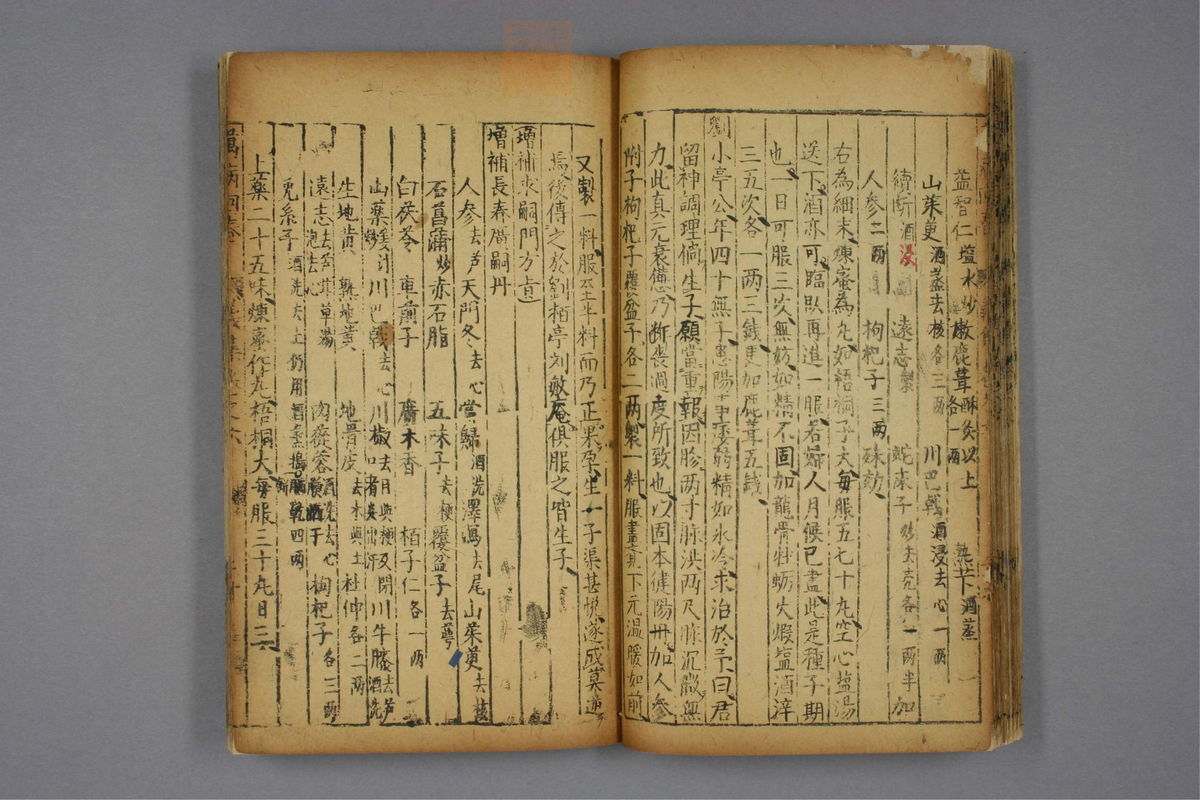 益智仁塩水炒 嫩鹿茸酥炙以上各一両 熟芐酒蒸
山茱萸酒蒸去核各三両 川巴戟酒浸去心一両
續断酒浸 遠志製 蛇床子炒去壳各一両半加
人参二両 枸杞子三両 殊效
右為細末煉蜜為丸如梧桐子大每服五七十丸空心塩湯
送下酒亦可臨臥再進一服若婦人月候已盡此是種子期
也一日可服三次無妨如精不固加龍骨牡蛎火煅塩酒淬
三五次各一両三錢更加鹿茸五錢
劉小亭公年四十無子患陽事痿弱精如氷冷求治於予曰君
留神調理倘生子願當重報因胗両寸脉洪両尺脉沉微無
力此真元衰憊乃斵喪過度所致也以固本健陽丹加人参
附子枸杞子覆盆子各二両製一料服盡覚下元温暖如前
又製一料服至半料而乃正果孕生一子渠甚悦遂成莫逆
焉後傳之於劉栢亭刘敏庵俱服之皆生子
増補求嗣門方
増補長春廣嗣丹
人参去芦 天門冬去心 當歸酒洗 澤瀉去尾 山茱萸去核
石菖蒲炒 赤石脂 五味子去梗 覆盆子去萼
白茯苓 車前子 廣木香 栢子仁各一両
山薬姜汁炒 川巴戟去心 川椒去目與梗及閉口者炒出汗 川牛膝去芦酒洗
生地黄 熟地黄 地骨皮去木與土 杜仲各二両
遠志去芦甘草湯泡去心 肉蓯蓉酒洗去心膜晒干 枸杞子各三両
兎糸子酒洗去土仍用酒蒸搗餅晒乾四両
上薬二十五味煉蜜作丸梧桐大每服三十丸日三